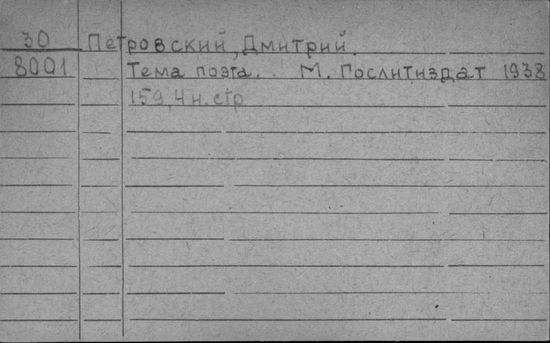 30 Петровский, Дмитрий.
8001 Тема поэта. М. Гослитиздат 1938
159, 4 н. стр